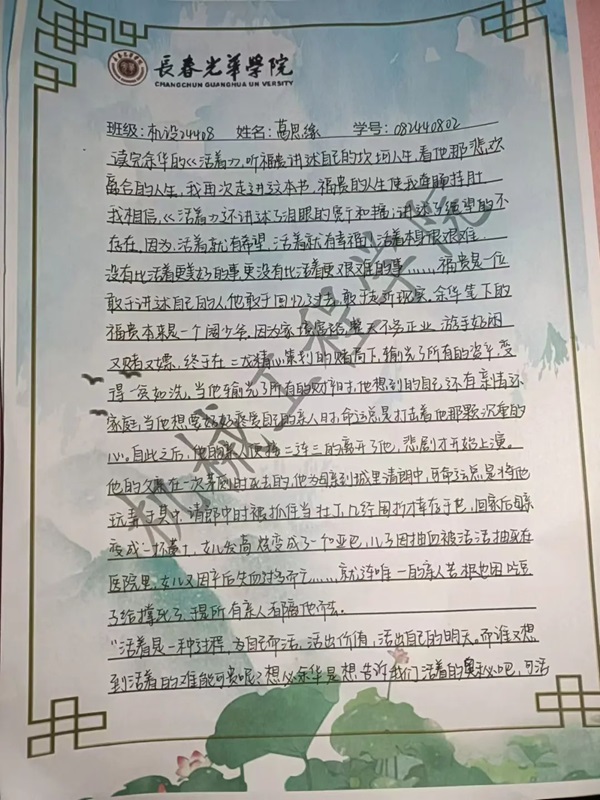 長春光華學院
CHANGCHUN GUANGHUA UNIVERSITY
班级:机设24408 姓名:葛思缘 学号:082440802
读完余华的《活着》,听福贵讲述自己的坎坷人生,看他那悲欢
离合的人生,我再次走进这本书,福贵的人生使我牵肠挂肚
我相信,《活着》还讲述了泪眼的宽广和 讲述了绝望的不
存在,因为,活着就有希望,活着就有幸福,活着本身很艰难
没有比活着更美好的事,更没有比活着更艰难的事……福贵是一位
敢于讲述自己的人,他敢于回忆过去,敢于 现实。余华笔下的
福贵本来是一个阔少爷,因为家 整天不务正业,游手好闲
又赌又嫖,终于在二龙精心策划的赌局下,输光了所有的家产,变
得一贫如洗,当他输光了所有的财产时,他想到的自己还有亲情还
家庭,当他想要好好疼爱自己的亲人时,命运总是打击着他那颗沉重的
心。自此之后,他的亲人便接二连三的离开了他,悲剧才开始上演。
他的父亲在一次 时死去的,他为母亲到城里请郎中,可命运总是将他
玩弄于其中,请郎中时被抓住当壮丁,几经周折才幸存于世,回家后母亲
变成一抔黄土,女儿发高烧变成了一个哑巴,儿子因抽血被活活抽死在
医院里,女儿又因产后失血过多而亡……就连唯一的亲人苦根也因吃豆
子给撑死了,于是所有亲人都离他而去。
“活着是一种过程,为自己而活,活出价值,活出自己的明天。而谁又想
到活着的难能可贵呢?想必余华是想告诉我们活着的奥秘吧,可活
机械工程学院